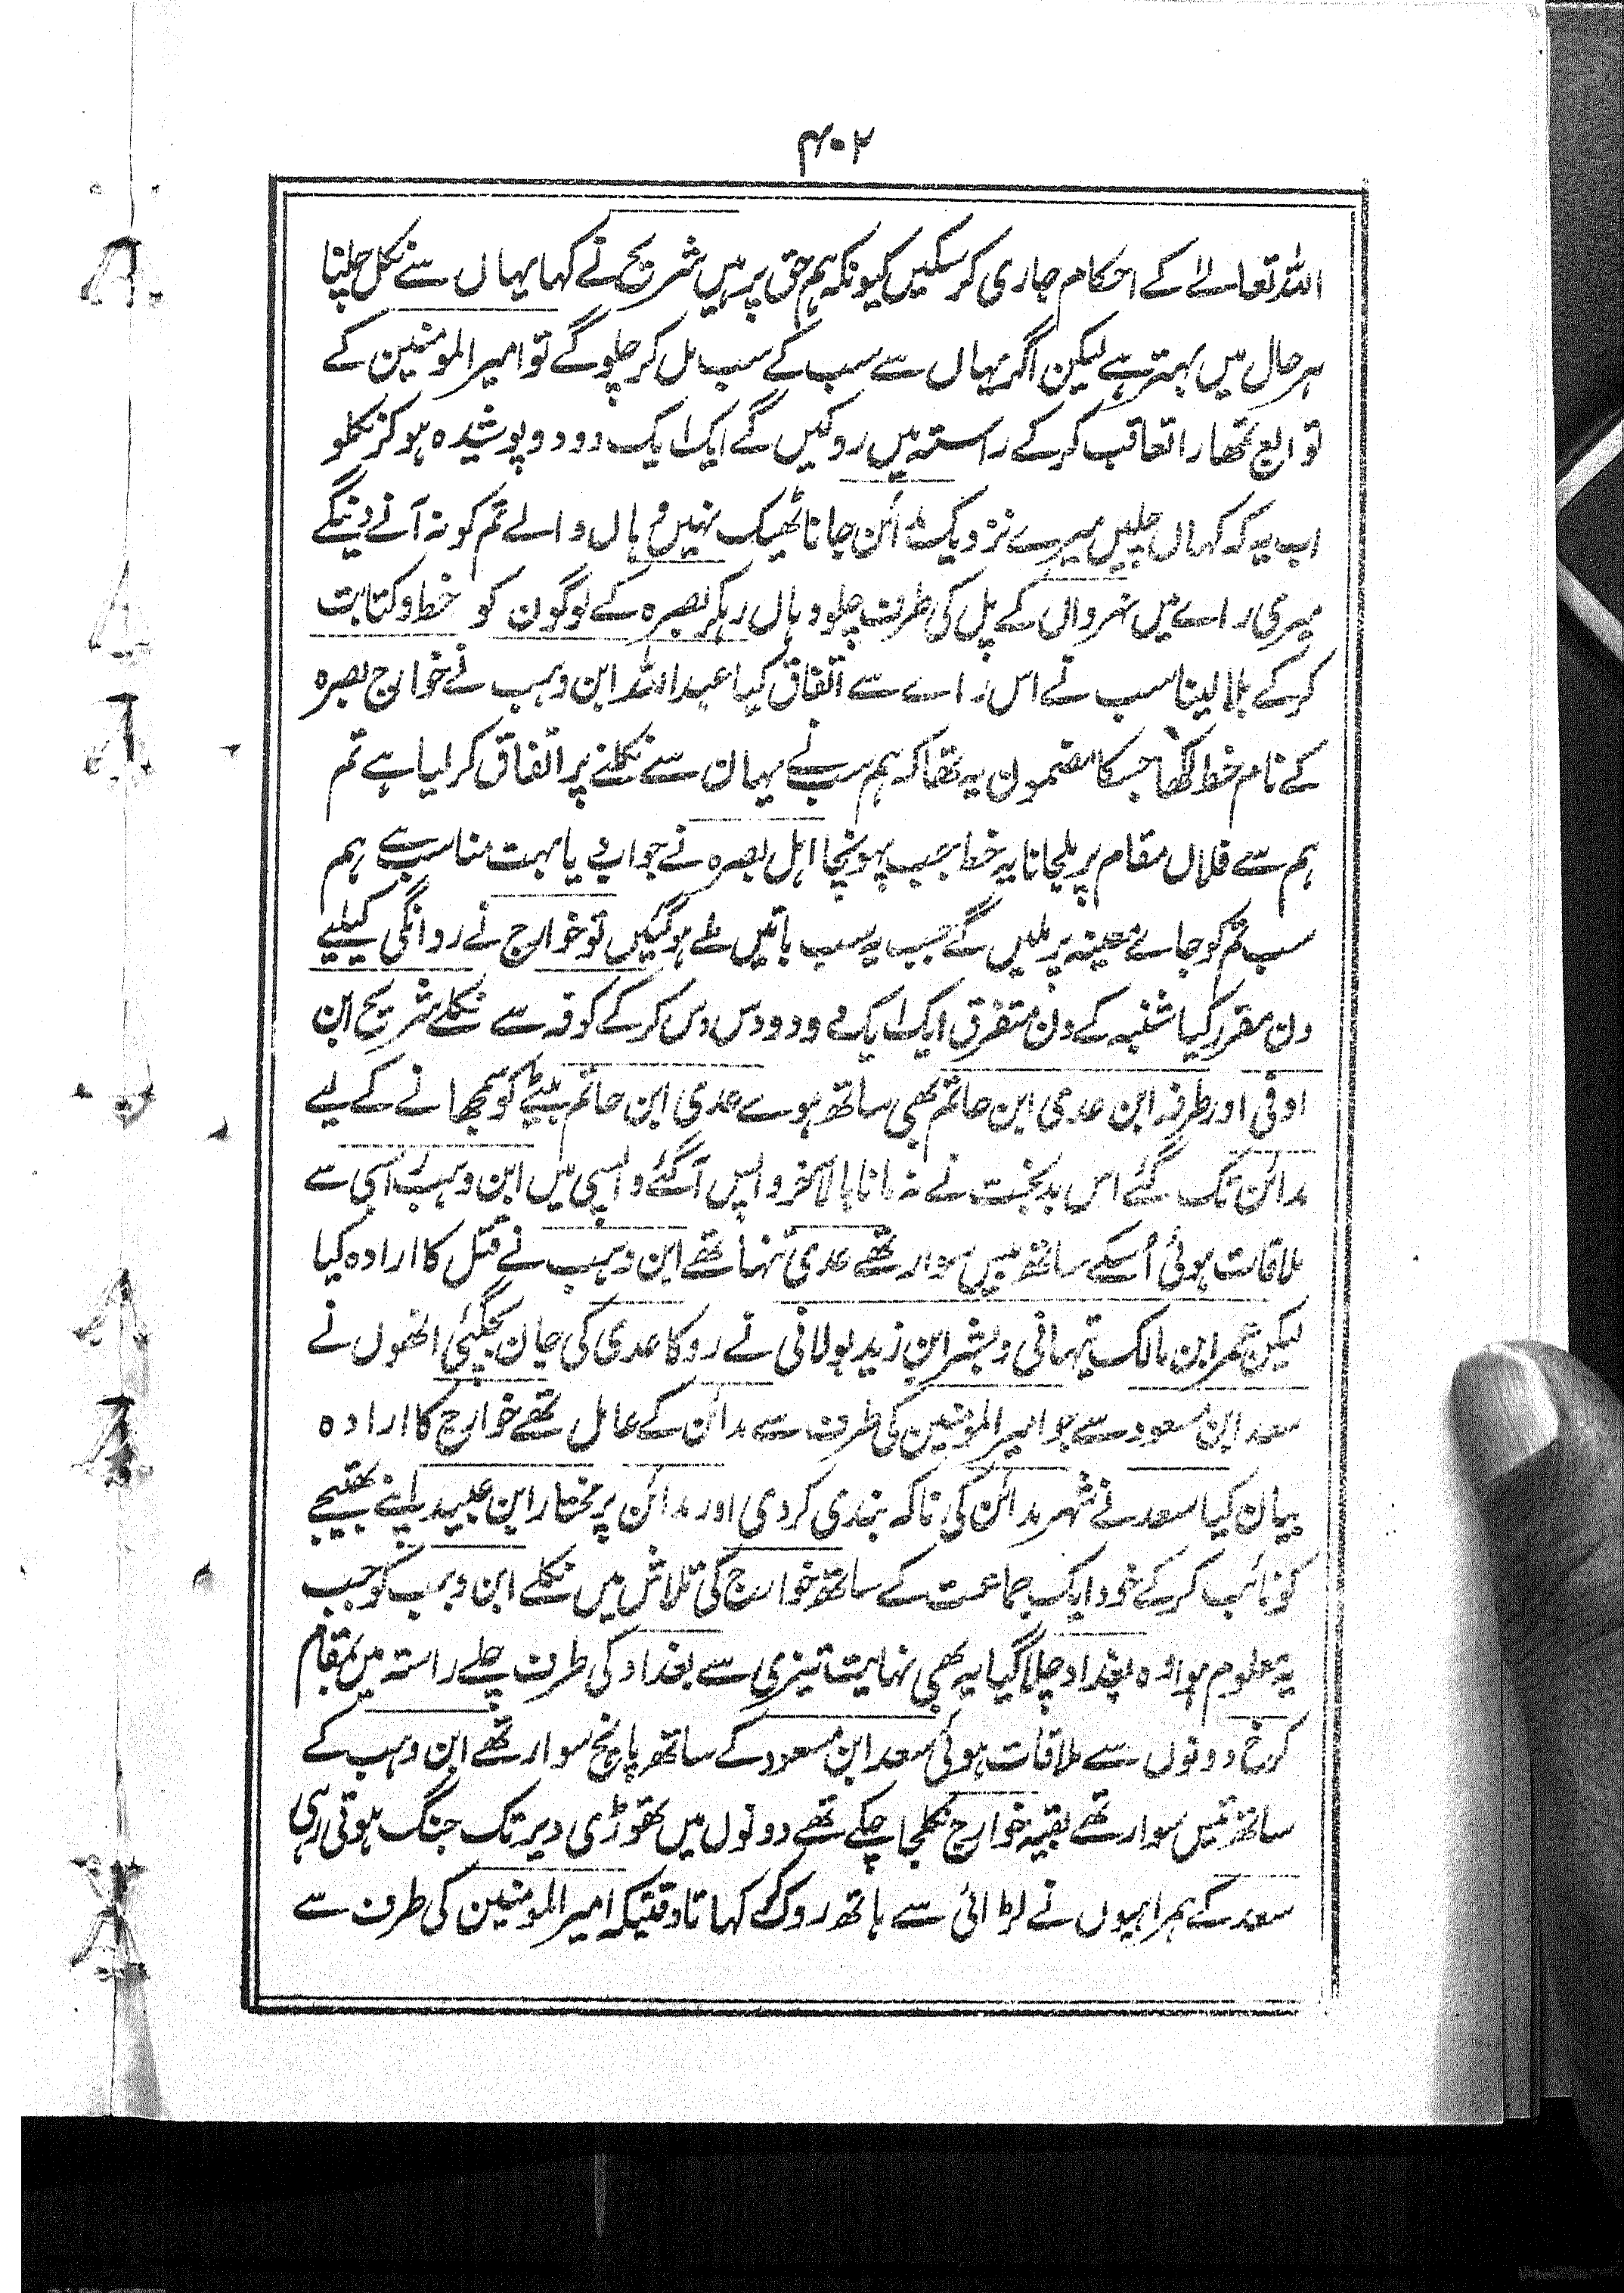 ۴۰۲
اللہ تعالےٰ کے احکام جاری کر سکیں کیونکہ ہم حق پر ہیں شریح نے کہا یہاں سے نکل چلنا
ہر حال میں بہتر ہے لیکن اگر یہاں سے سب کے سب مل کر چلو گے تو امیر المومنین کے
توابع تمھارا تعاقب کرکے راستہ میں روکیں گے ایک ایک دو دو پوشیدہ ہو کر نکلو
اب یہ کہ کہاں چلیں میرے نزدیک مدائن جانا ٹھیک نہیں وہاں والے تم کو نہ آنے دینگے
میری راے میں نہروان کے پل کی طرف چلو وہاں رہکر بصرہ کے لوگون کو خط و کتابت
کرکے بلا لینا سب نے اس راے سے اتفاق کیا عبداللہ ابن وہب نے خوارج بصرہ
کے نام خط لکھا جسکا مضمون یہ تھا کہ ہم سب نے یہان سے نکلنے پر اتفاق کر لیا ہے تم
ہم سے فلاں مقام پر ملجانا یہ خط جب پہونچا اہل بصرہ نے جواب دیا بہت مناسب ہے ہم
سب تم کو جاے معینہ پر ملیں گے جب یہ سب باتیں طے ہوگئیں تو خوارج نے روانگی کیلیے
دن مقرر کیا شنبہ کے دن متفرق ایک ایک دو دو دس دس کرکے کوفہ سے نکلے شریح ابن
اوفی اور طرفہ ابن عدی ابن حاتم بھی ساتھ ہوے عدی ابن حاتم بیٹے کو سمجھانے کے لیے
مدائن تک گئے اس بدبخت نے نہ مانا بالآخر واپس آگئے واپسی میں ابن وہب راسبی سے
ملاقات ہوئی اُسکے ساتھ بیس سوار تھے عدی تنہا تھے ابن وہب نے قتل کا ارادہ کیا
لیکن عمر ابن مالک تیہانی و بشر ابن زید بولانی نے روکا عدی کی جان بچگئی انھوں نے
سعد ابن مسعود سے جو امیر المومنین کی طرف سے مدائن کے عامل تھے خوارج کا ارادہ
بیان کیا سعد نے شہر مدائن کی ناکہ بندی کردی اور مدائن پر مختار ابن عبید اپنے بھتیجے
کو نائب کرکے خود ایک جماعت کے ساتھ خوارج کی تلاش میں نکلے ابن وہب کو جب
یہ معلوم ہوا وہ بغداد چلا گیا یہ بھی نہایت تیزی سے بغداد کی طرف چلے راستہ میں بمقام
کرخ دونوں سے ملاقات ہوئی سعد ابن مسعود کے ساتھ پانچ سوار تھے ابن وہب کے
ساتھ تیس سوار تھے بقیہ خوارج نکلجا چکے تھے دونوں میں تھوڑی دیر تک جنگ ہوتی رہی
سعد کے ہمراہیوں نے لڑائی سے ہاتھ روک کر کہا تاوقتیکہ امیر المومنین کی طرف سے